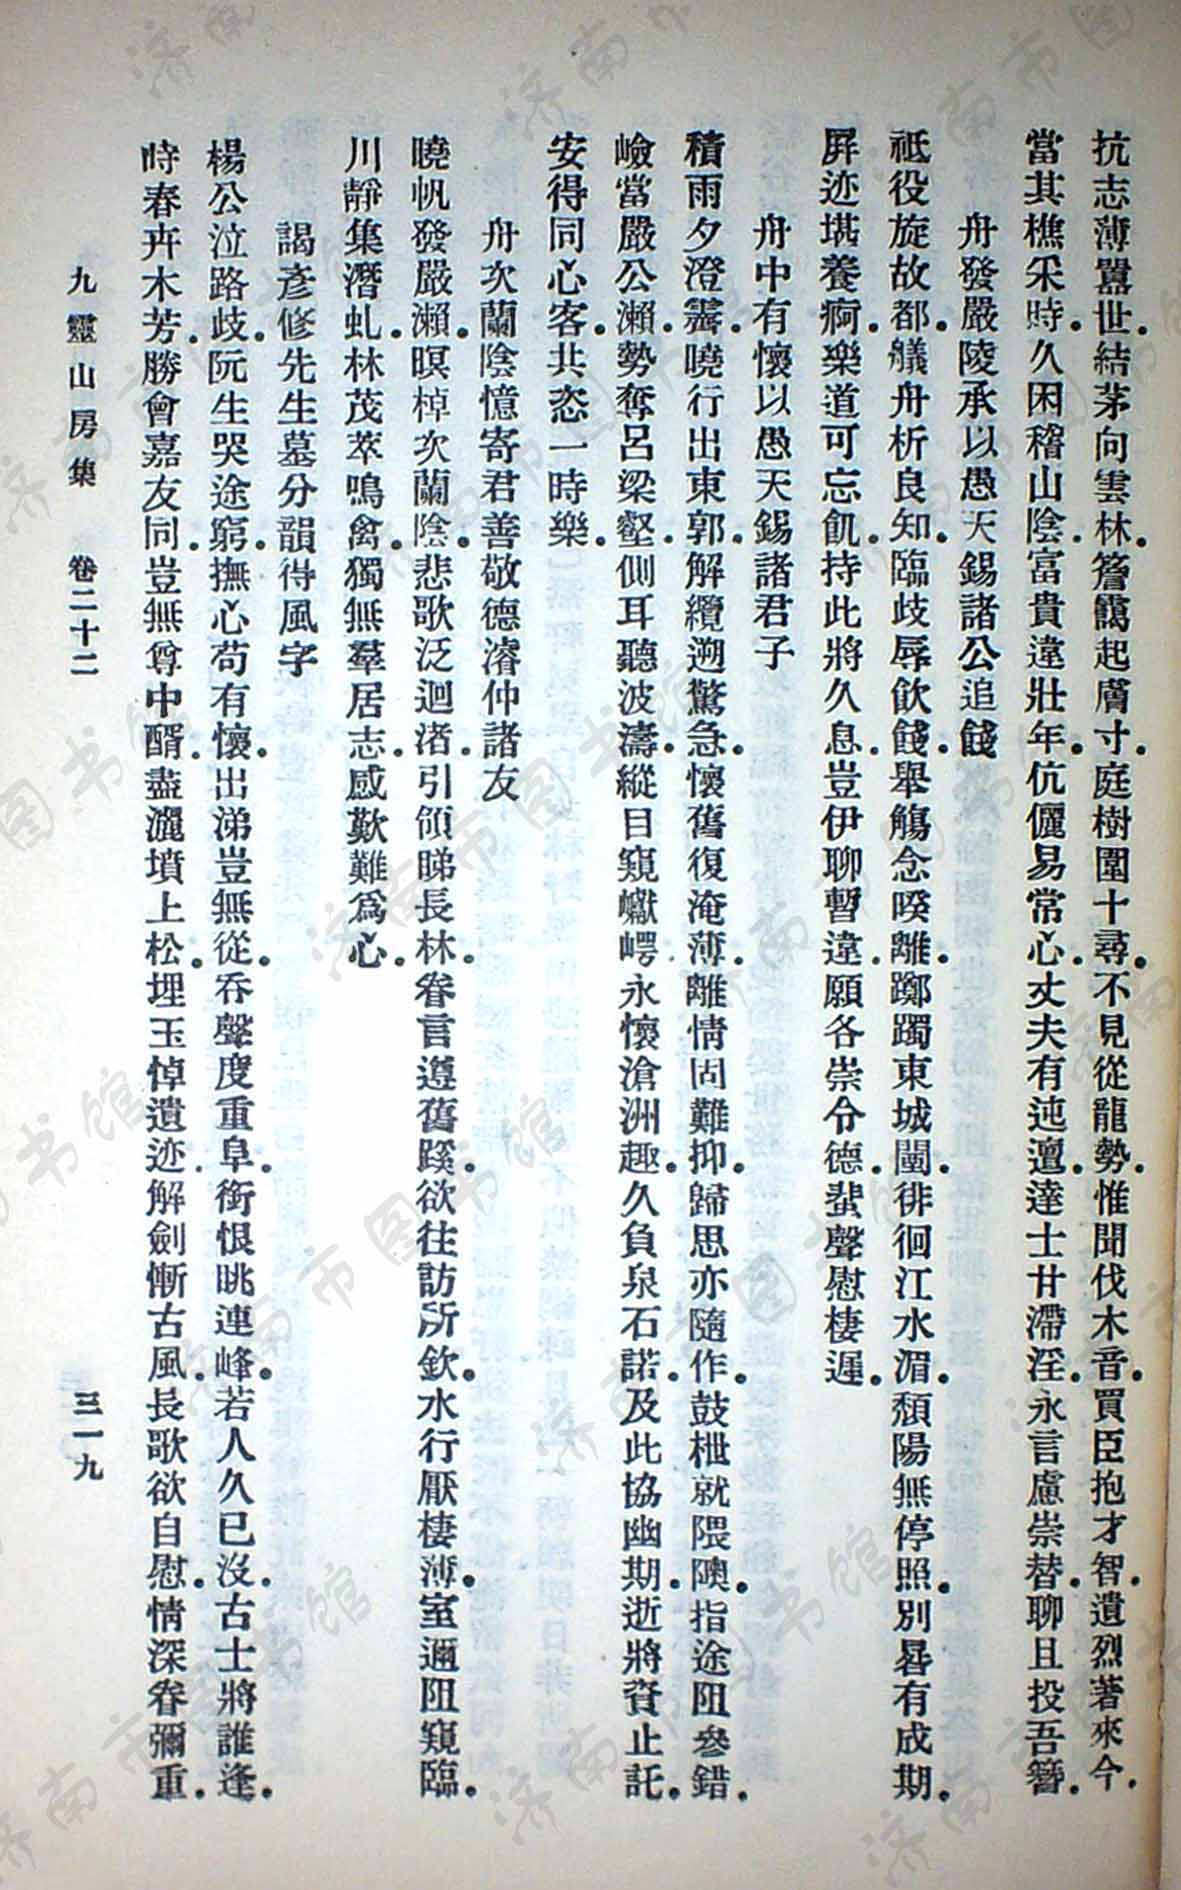 抗志薄囂世結茅向雲林簷靄起膚寸庭樹圍十尋不見從龍勢惟聞伐木音買臣抱才智遺烈著來今
當其樵采時久困稽山陰富貴違壯年伉儷易常心丈夫有迍邅達士甘滯淫永言慮崇替聊且投吾簪
舟發嚴陵承以愚天錫諸公追餞
祗役旋故都艤舟析良知臨歧辱飲餞舉觴念暌離躑躅東城闉徘徊江水湄頹陽無停照別晷有成期
屏迹堪養痾樂道可忘飢持此將久息豈伊聊暫違願各崇令德蜚聲慰棲遲
舟中有懷以愚天錫諸君子
積雨夕澄霽曉行出東郭解纜遡驚急懷舊復淹薄離情固難抑歸思亦隨作鼓枻就隈隩指途阻參錯
嶮當嚴公瀨勢奪呂梁壑側耳聽波濤縱目窺巘崿永懷滄洲趣久負泉石諾及此協幽期逝將資止託
安得同心客共恣一時樂
舟次蘭陰憶寄君善敬德濬仲諸友
曉帆發嚴瀨暝棹次蘭陰悲歌泛迴渚引領睇長林眷言遵舊蹊欲往訪所欽水行厭棲薄室邇阻窺臨
川靜集潛虬林茂萃鳴禽獨無羣居志感歎難爲心
謁彥修先生墓分韻得風字
楊公泣路歧阮生哭途窮撫心苟有懷出涕豈無從吞聲度重阜銜恨眺連峰若人久已沒古士將誰逢
時春卉木芳勝會嘉友同豈無尊中醑盡灑墳上松埋玉悼遺迹解劍慚古風長歌欲自慰情深眷彌重
九靈山房集 卷二十二 三一九